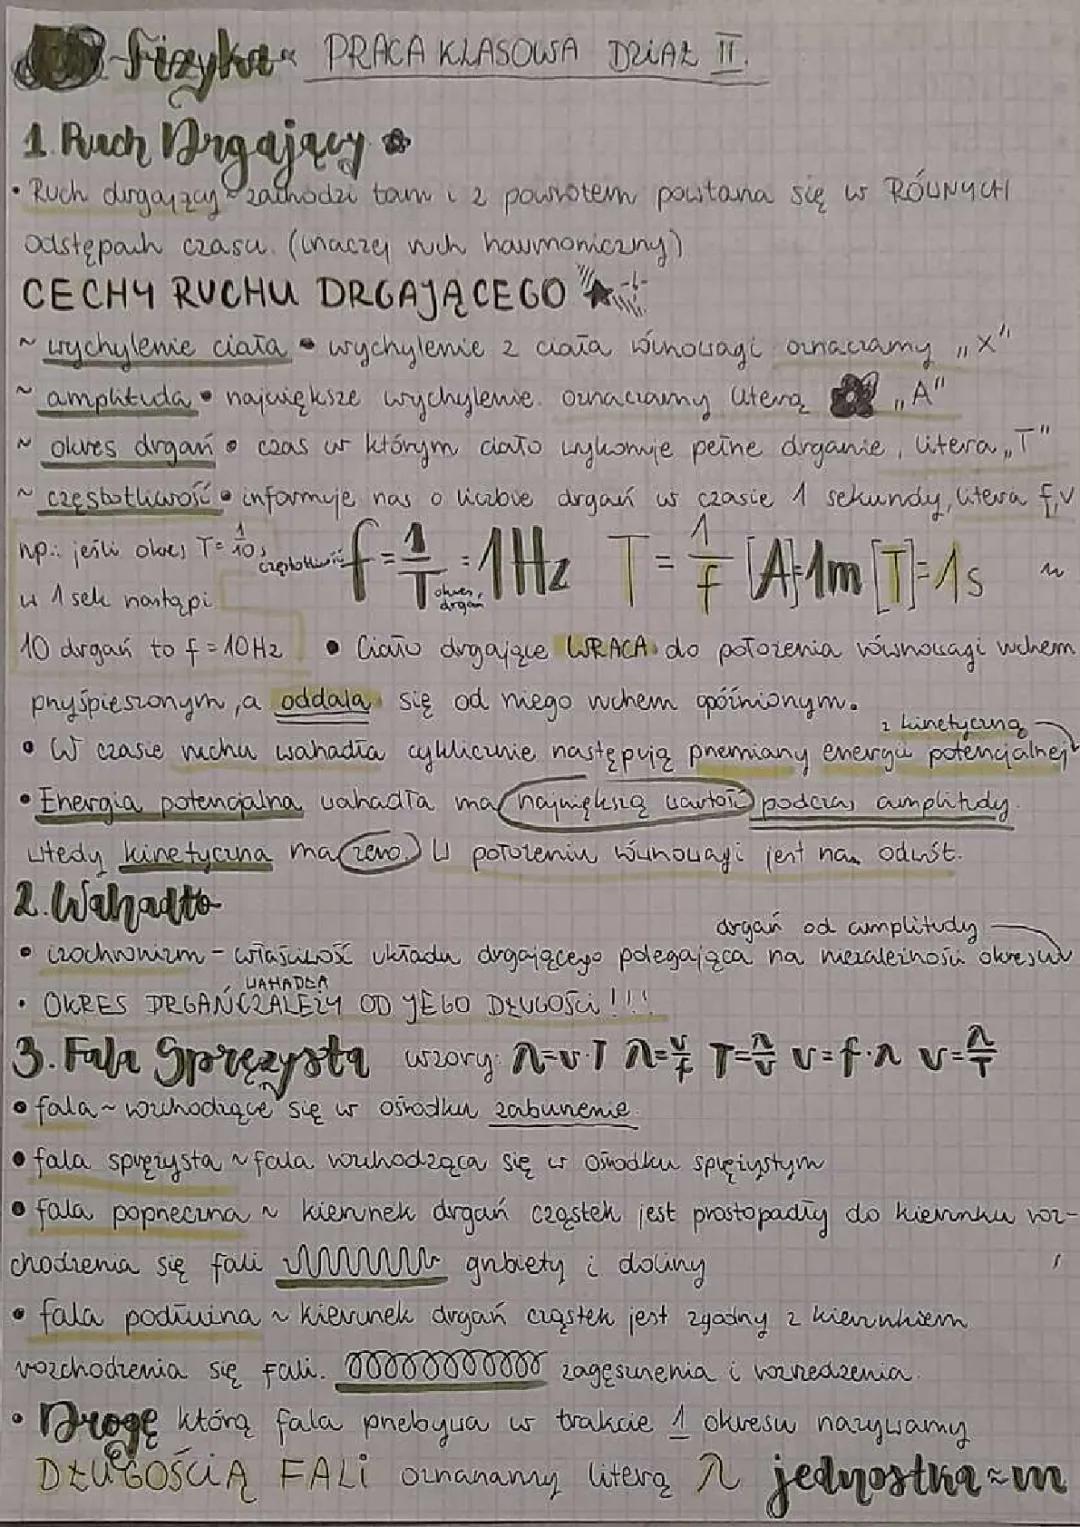 Fizyka PRACA KLASOWA DZIAŁ II.
1. Ruch Drgający
• Ruch drgający ~ zachodzi tam i z powrotem powtarza się w RÓWNYCH
odstępach czasu. (inaczej ruch harmoniczny)
CECHY RUCHU DRGAJĄCEGO
~ wychylenie ciała • wychylenie z ciała równowagi oznaczamy „X"
~ amplituda • największe wychylenie. oznaczamy literą „A"
~ okres drgań • czas w którym ciało wykonuje pełne drganie, litera „T"
~ częstotliwość • informuje nas o liczbie drgań w czasie 1 sekundy, litera f, ν
np.: jeśli okres T = 1/10 s
w 1 sek nastąpi
10 drgań to f = 10Hz
częstotliwość f = 1/T okres drgań = 1Hz T = 1/f [A]=1m [T]=1s
• Ciało drgające WRACA do położenia równowagi ruchem
przyśpieszonym, a oddala się od niego ruchem opóźnionym.
• W czasie ruchu wahadła cyklicznie następują przemiany energii potencjalnej
z kinetyczną
• Energia potencjalna wahadła ma największą wartość podczas amplitudy.
Wtedy kinetyczna ma zero. W położeniu równowagi jest na odwrót.
2. Wahadło
• izochronizm - właściwość układu drgającego polegająca na niezależności okresu
drgań od amplitudy
• OKRES DRGAŃ WAHADŁA ZALEŻY OD JEGO DŁUGOŚCI!!!
3. Fala Sprężysta wzory: λ=v·T λ=v/f T=λ/v v=f·λ v=λ/T
• fala ~ rozchodzące się w ośrodku zaburzenie.
• fala sprężysta ~ fala rozchodząca się w ośrodku sprężystym
• fala poprzeczna ~ kierunek drgań cząstek jest prostopadły do kierunku roz-
chodzenia się fali grzbiety i doliny
• fala podłużna ~ kierunek drgań cząstek jest zgodny z kierunkiem
rozchodzenia się fali. zagęszczenia i rozrzedzenia.
• Drogę którą fala przebywa w trakcie 1 okresu nazywamy
DŁUGOŚCIĄ FALI oznaczamy literą λ jednostka ~ m